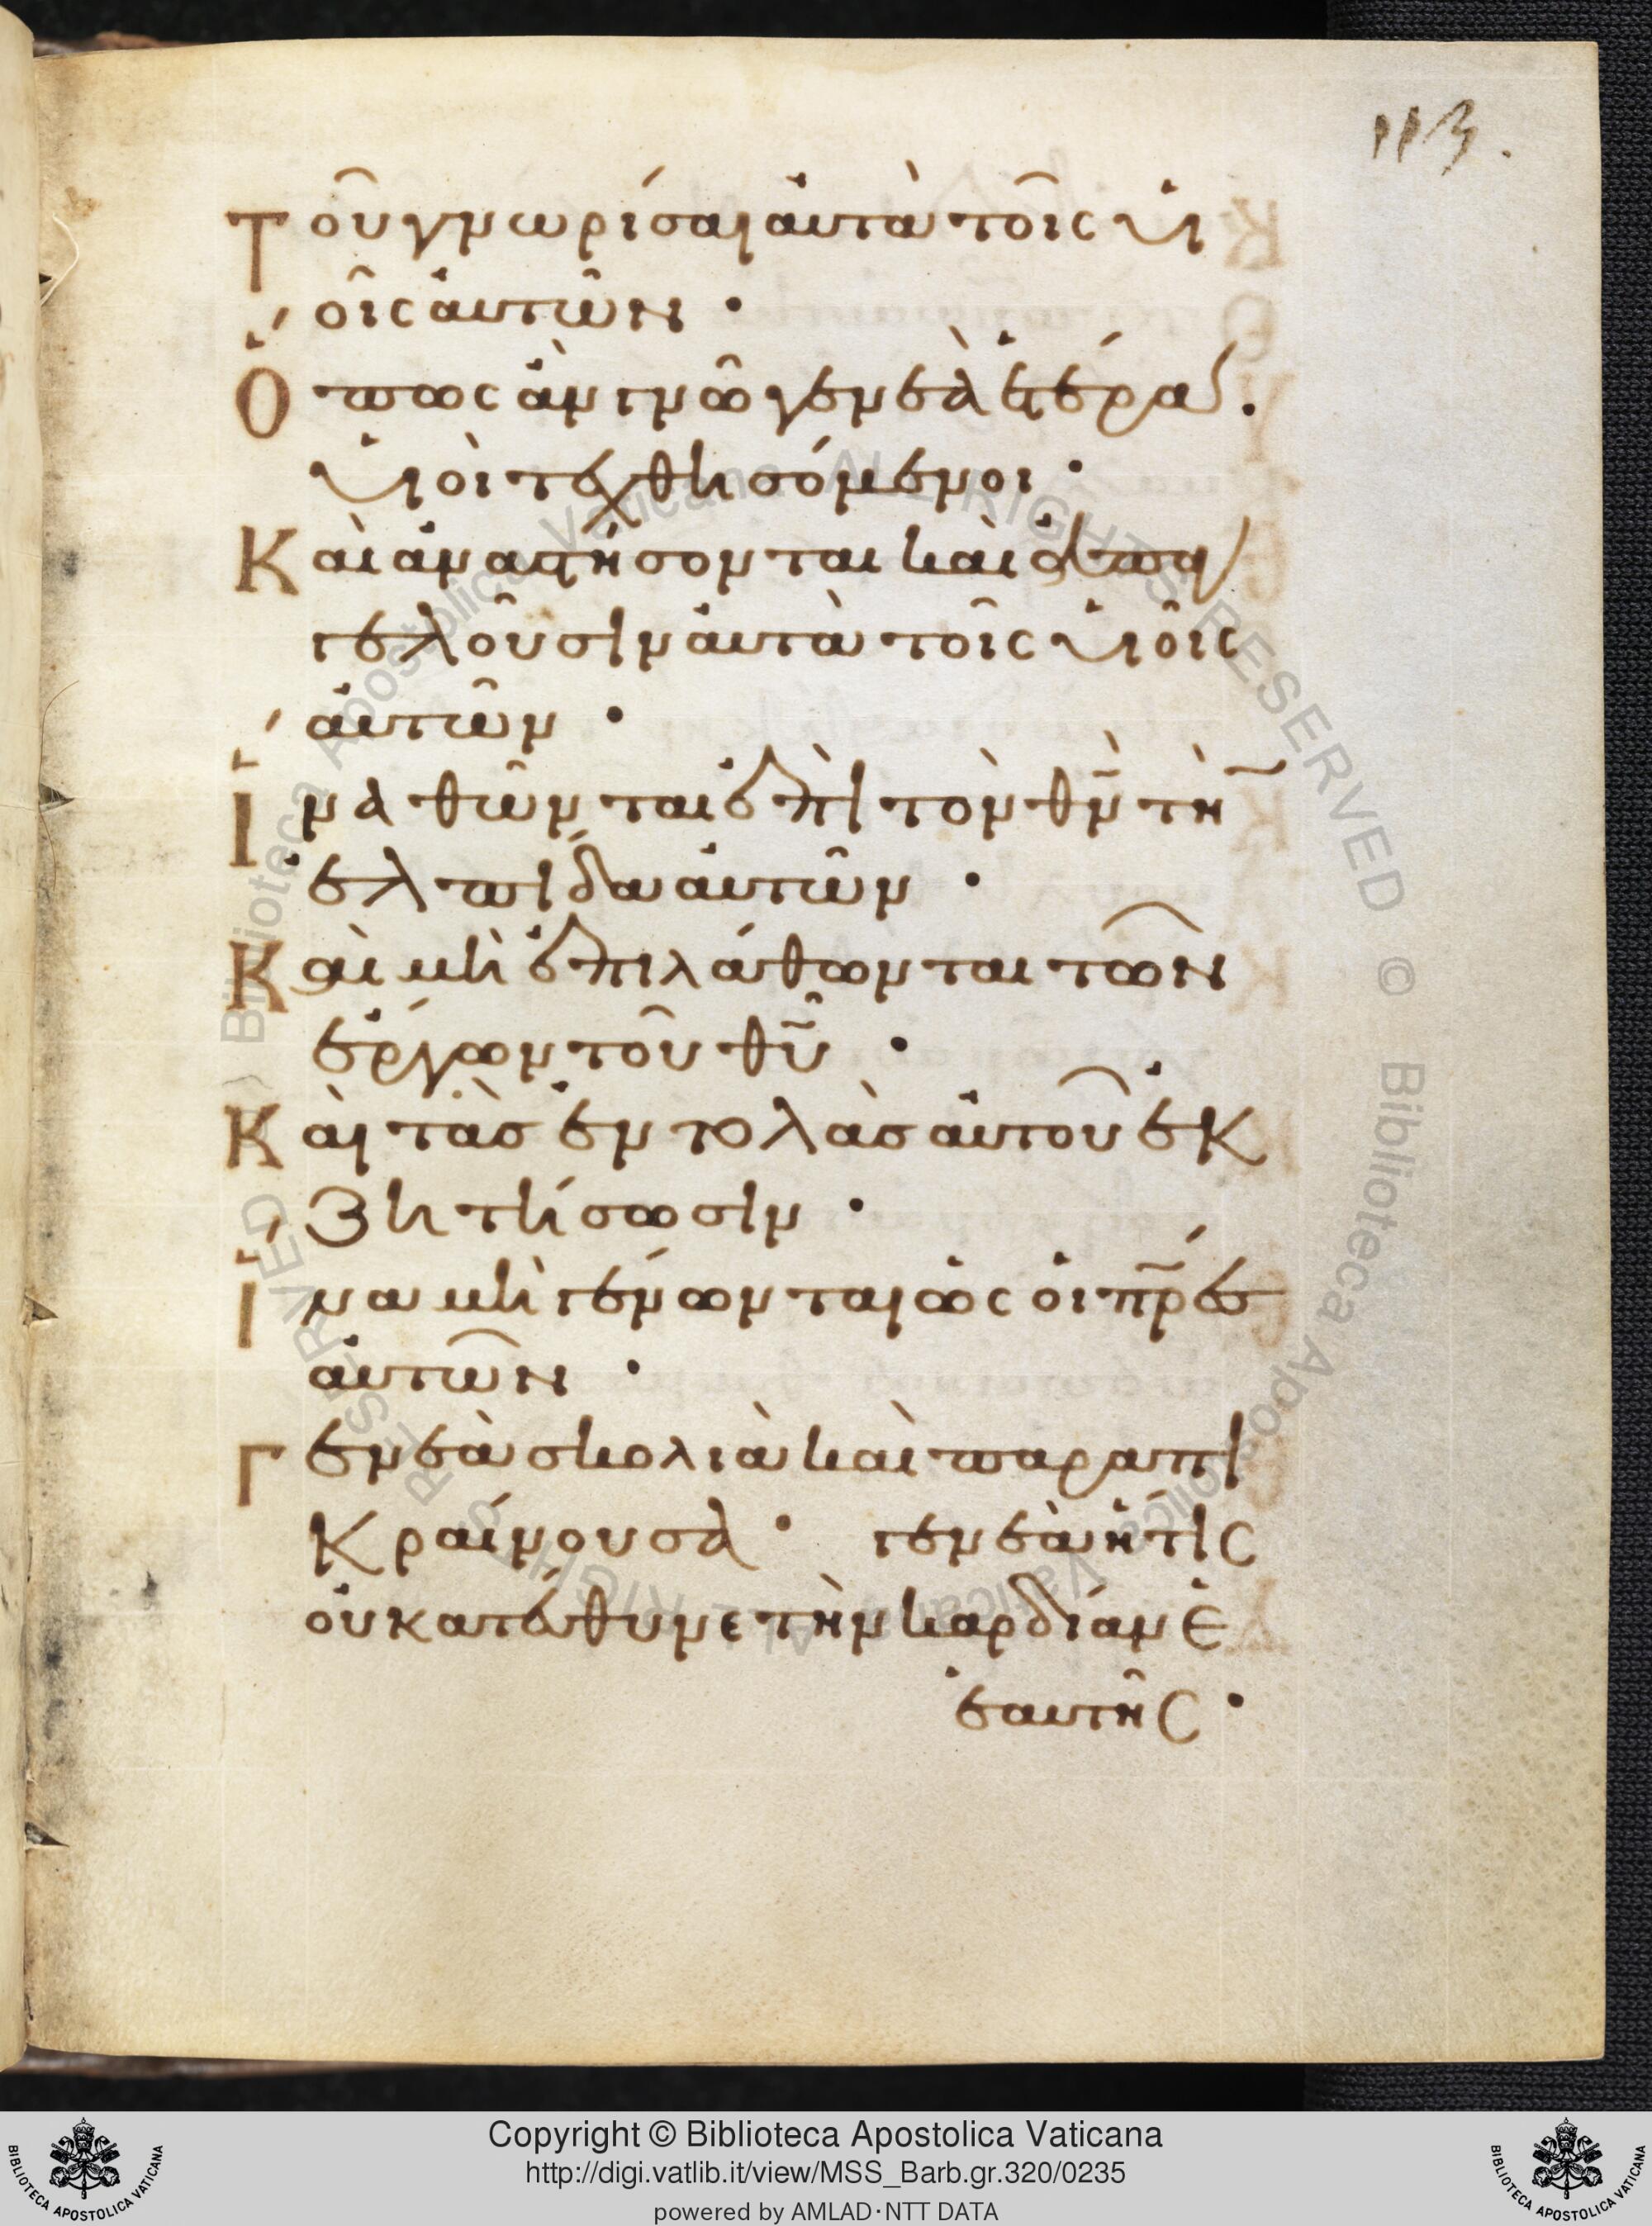 113.
Τοῦ γνωρίσαι ἀυτὰ τοῖς ὑι
οῖς ἀυτῶν ·
Ὅπως ἀν γνῶ γενεὰ ἑτέρα.
ὑιοὶ τεχθησόμενοι ·
Καὶ ἀναστήσονται καὶ ἀπαγ
γελοῦσιν ἀυτὰ τοῖς ὑιοῖς
ἀυτῶν ·
Ἵνα θῶνται ἐπὶ τὸν θν̄ τὴν
ἐλπίδα ἀυτῶν ·
Καὶ μὴ ἐπιλάθωνται τῶν
ἔργων τοῦ θῡ ·
Καὶ τὰσ ἐντολὰσ ἀυτοῦ ἐκ
ζητήσωσιν ·
Ἵνα μὴ γένωνται ὡς ὁι πρ̄ες
ἀυτῶν ·
Γενεὰ σκολιὰ καὶ παραπι
κραίνουσα · γενεὰ ἥτις
ὀυ κατέυθυνε τὴν καρδίαν ἑ
ἑαυτῆς ·
Copyright © Biblioteca Apostolica Vaticana
http://digi.vatlib.it/view/MSS_Barb.gr.320/0235
powered by AMLAD·NTT DATA
BIBLIOTECA APOSTOLICA VATICANA
BIBLIOTECA APOSTOLICA VATICANA